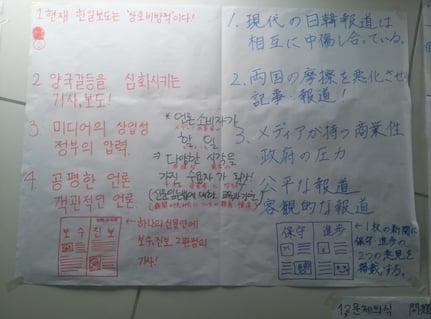 1. 현재 한일보도는 '상호비방적'이다!
2. 양국갈등을 심화시키는
기사, 보도!
3. 미디어의 상업성
정부의 압력.
4. 공평한 언론
객관적인 언론.
보수 진보
←하나의 신문안에
보수, 진보 2편정의
기사!
* 언론 소비자가
할 일
⇒ 다양한 시각을
가진 수용자가 되자!
1. 現代の日韓報道は
相互に中傷し合っている。
2. 両国の摩擦を悪化させ
記事・報道!
3. メディアが持つ商業性
政府の圧力
公平な報道
客観的な報道
保守 進歩
←1枚の新聞に
保守・進歩の
2つの意見を
掲載する。
문제의식 問題